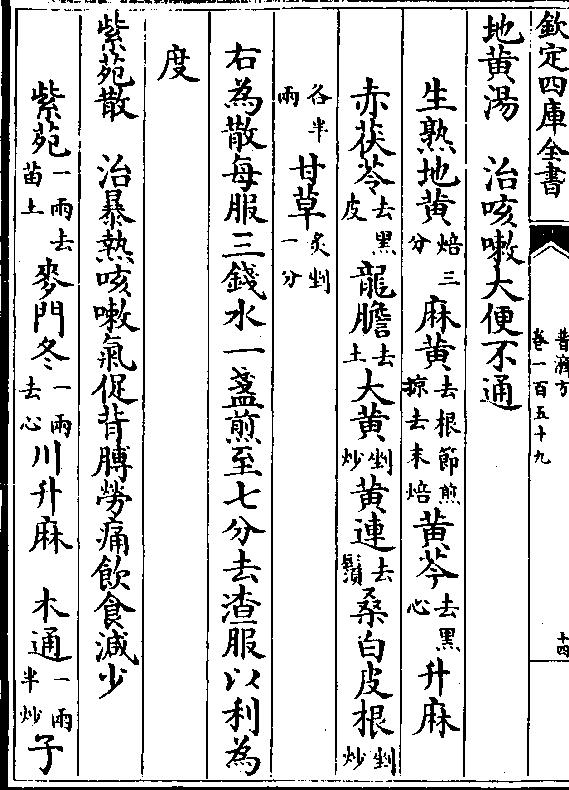 欽定四庫全書
普濟方
卷一百五十九
十四
地黄湯　治咳嗽大便不通
生熟地黄焙三分麻黄去根節煎掠去末焙黄芩去黑心升麻
赤茯苓去黑皮龍膽去土大黄剉炒黄連去鬚桑白皮根剉炒
各半兩甘草炙剉一分
右為散每服三錢水一盞煎至七分去渣服以利為
度
紫菀散　治暴熱咳嗽氣促背膊勞痛飲食減少
紫菀一兩去苗土麥門冬一兩去心川升麻　木通一兩半炒子